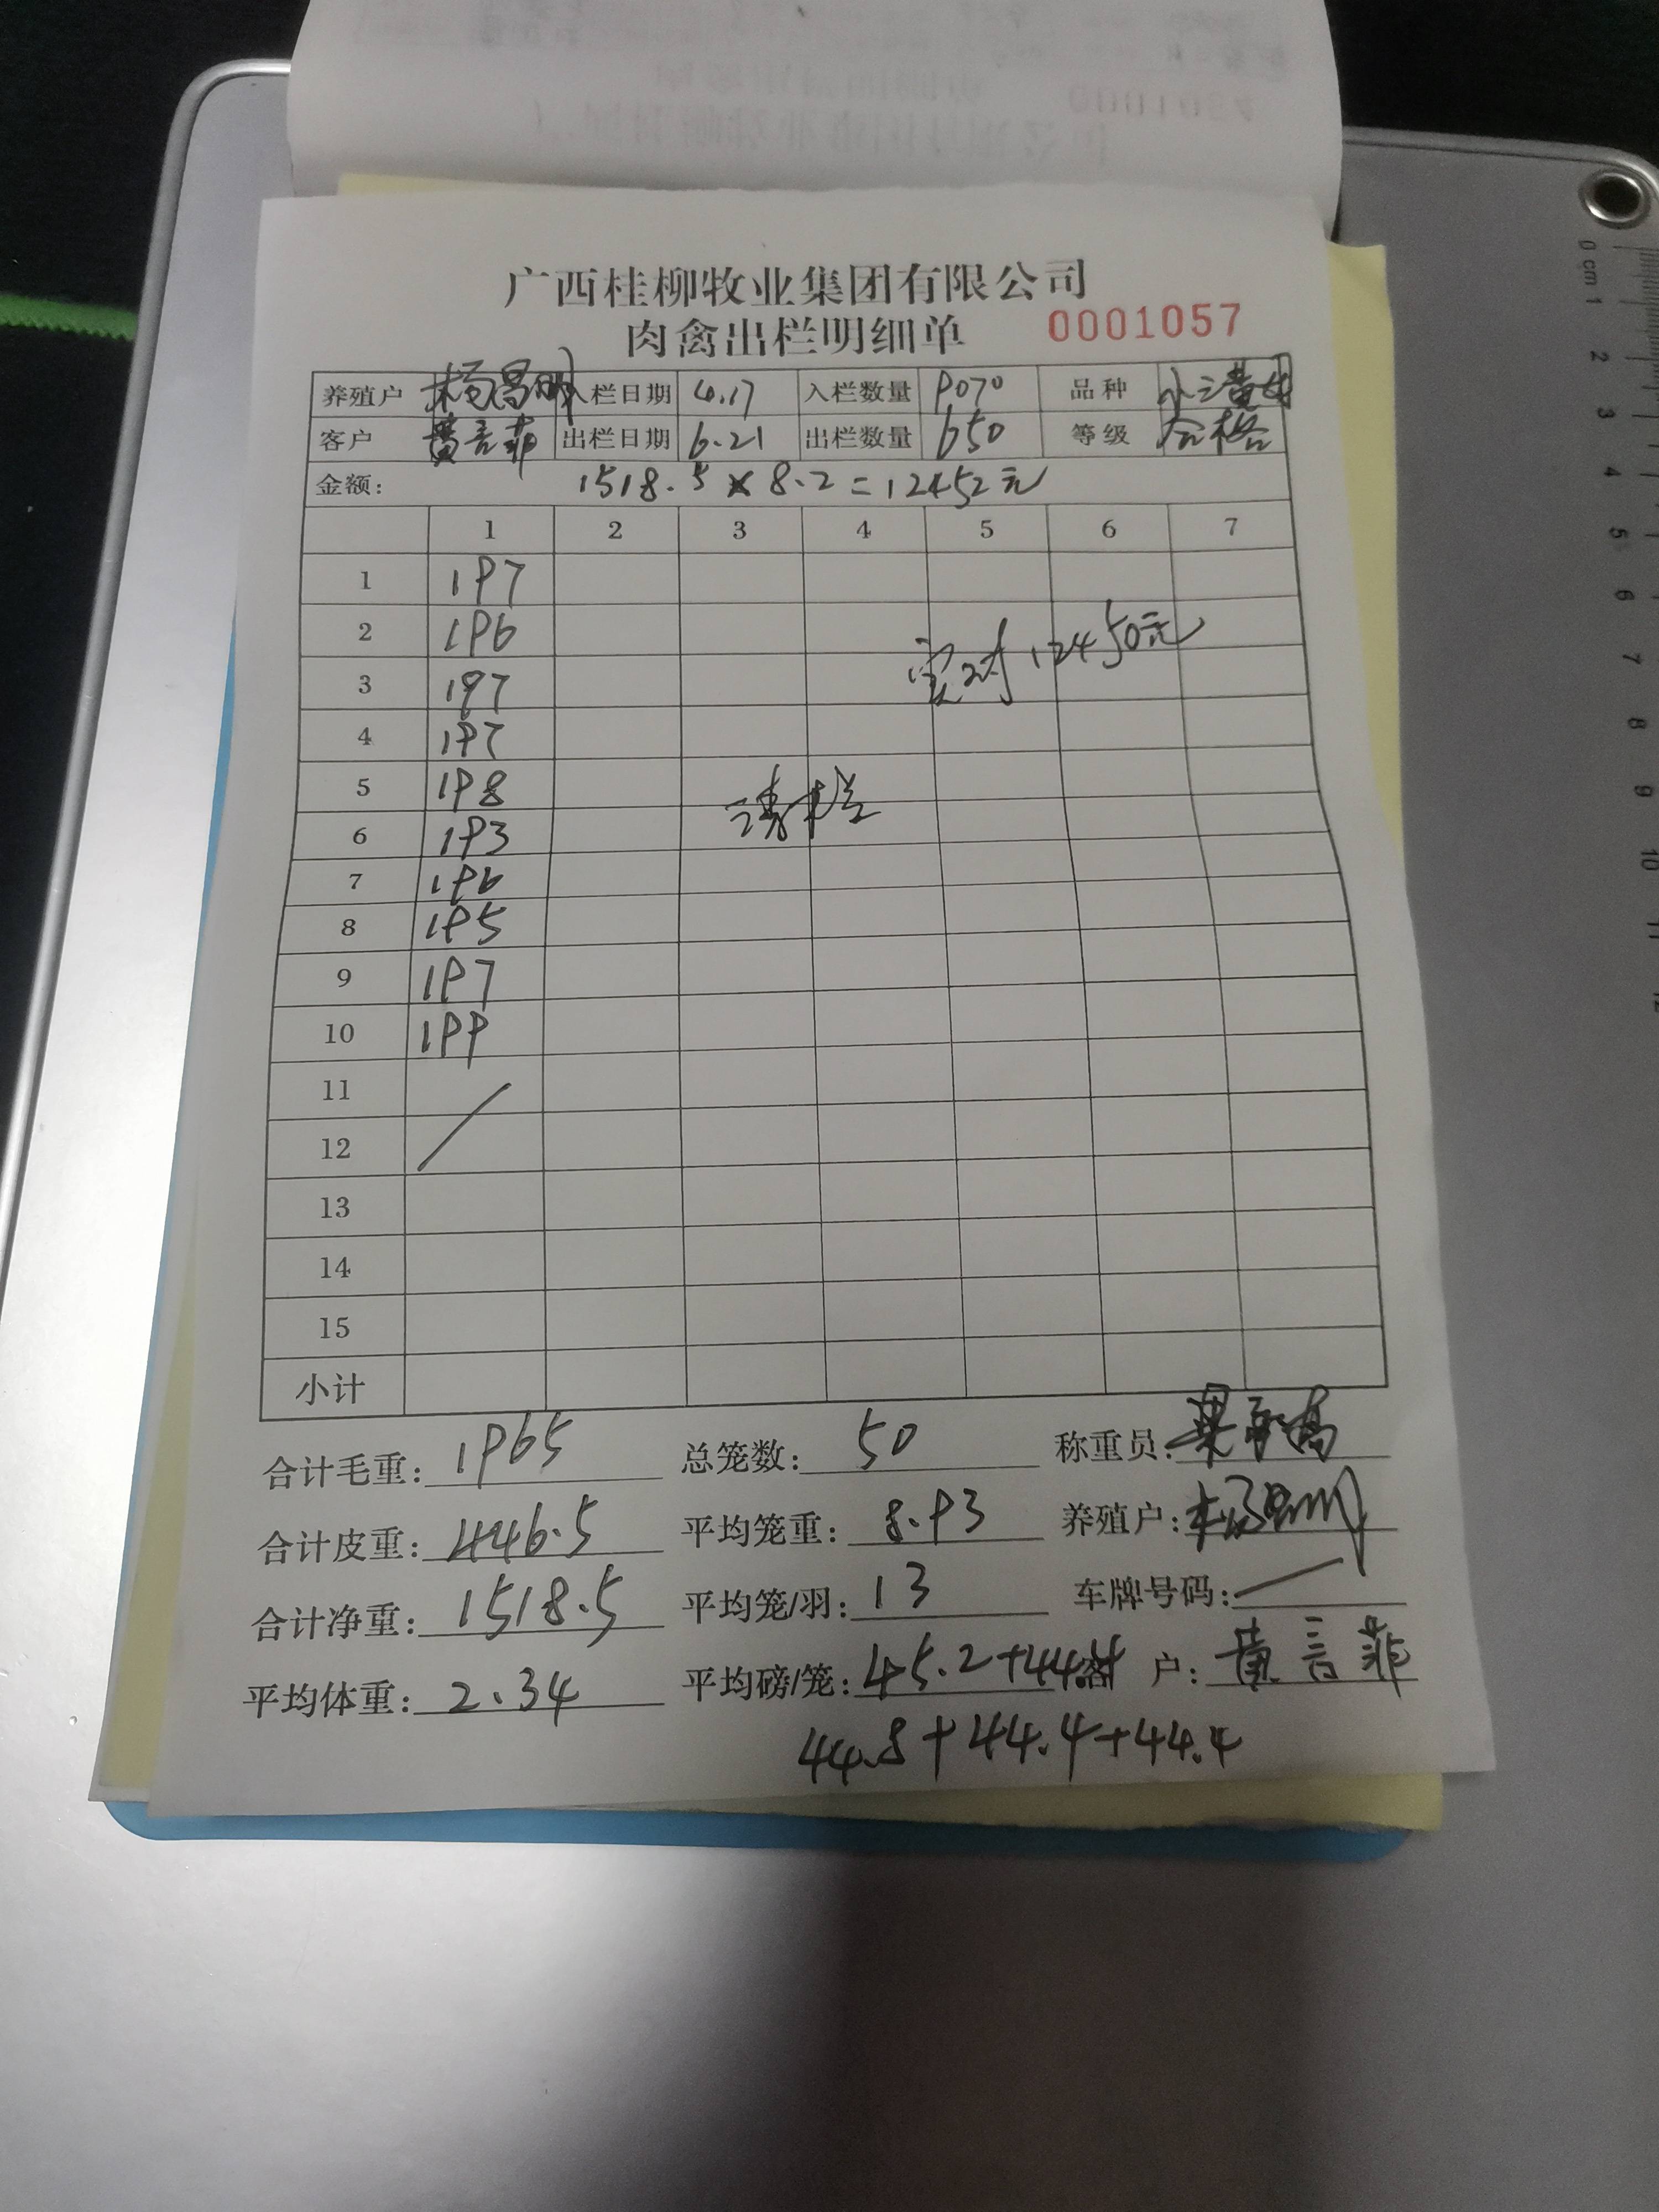 广西桂柳牧业集团有限公司
肉禽出栏明细单 0001057
养殖户 杨昌明 入栏日期 4.17 入栏数量 9070 品种 小三黄母
客户 黄言菲 出栏日期 6.21 出栏数量 650 等级 合格
金额: 1518.5×8.2=12452元
1 2 3 4 5 6 7
1 197
2 196
实付12450元
3 197
4 197
5 198
清栏
6 193
7 196
8 195
9 197
10 199
11
12
13
14
15
小计
合计毛重: 1965 总笼数: 50 称重员:
合计皮重: 446.5 平均笼重: 8.93 养殖户: 杨昌明
合计净重: 1518.5 平均笼/羽: 13 车牌号码:
平均体重: 2.34 平均磅/笼: 45.2+44. 客 户: 黄言菲
44.8+44.4+44.4
0 cm 1
2
3
4
5
6
7
8
9
10
11
12